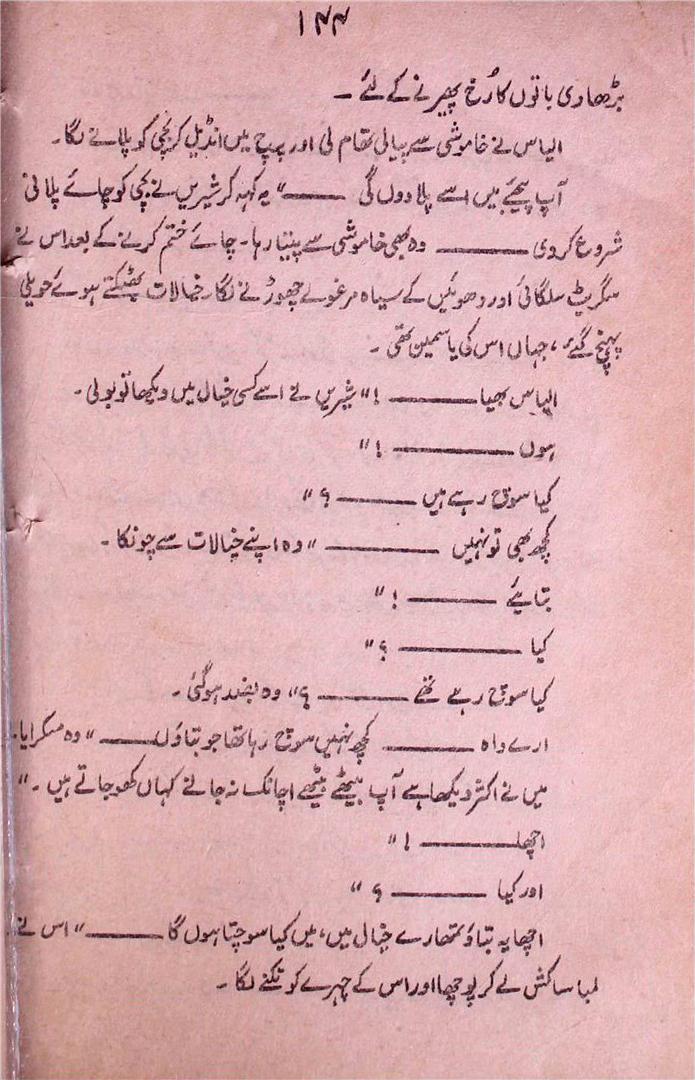 ۱۴۴
بڑھا دی باتوں کا رُخ پھیرنے کے لئے ۔
الیاس نے خاموشی سے پیالی تھام لی اور پرچ میں انڈیل کر بچی کو پلانے لگا۔
آپ پیجئے میں اسے پلا دوں گی ——— " یہ کہہ کر شیریں نے بچی کو چائے پلانی
شروع کردی ——— وہ بھی خاموشی سے پیتا رہا۔ چائے ختم کرنے کے بعد اس نے
سگریٹ سلگائی اور دھوئیں کے سیاہ مرغولے چھوڑنے لگا۔ خیالات بھٹکتے ہوئے حویلی
پہنچ گئے، جہاں اس کی یاسمین تھی ۔
الیاس بھیا ——— !" شیریں نے اسے کسی خیال میں دیکھا تو بولی ۔
ہوں ——— !"
کیا سوچ رہے ہیں ——— ؟"
کچھ بھی تو نہیں ——— " وہ اپنے خیالات سے چونکا ۔
بتایئے ——— !"
کیا ——— ؟"
کیا سوچ رہے تھے ——— ؟" وہ بضد ہوگئی ۔
ارے واہ ——— کچھ نہیں سوچ رہا تھا جو بتاؤں ——— " وہ مسکرایا۔
میں نے اکثر دیکھا ہے آپ بیٹھے بیٹھے اچانک نہ جانے کہاں کھو جاتے ہیں ۔"
اچھا ——— !"
اور کیا ——— ؟"
اچھا یہ بتاؤ تمھارے خیال میں، میں کیا سوچتا ہوں گا ——— " اس نے
لمبا سا کش لے کر پوچھا اور اس کے چہرے کو تکنے لگا ۔